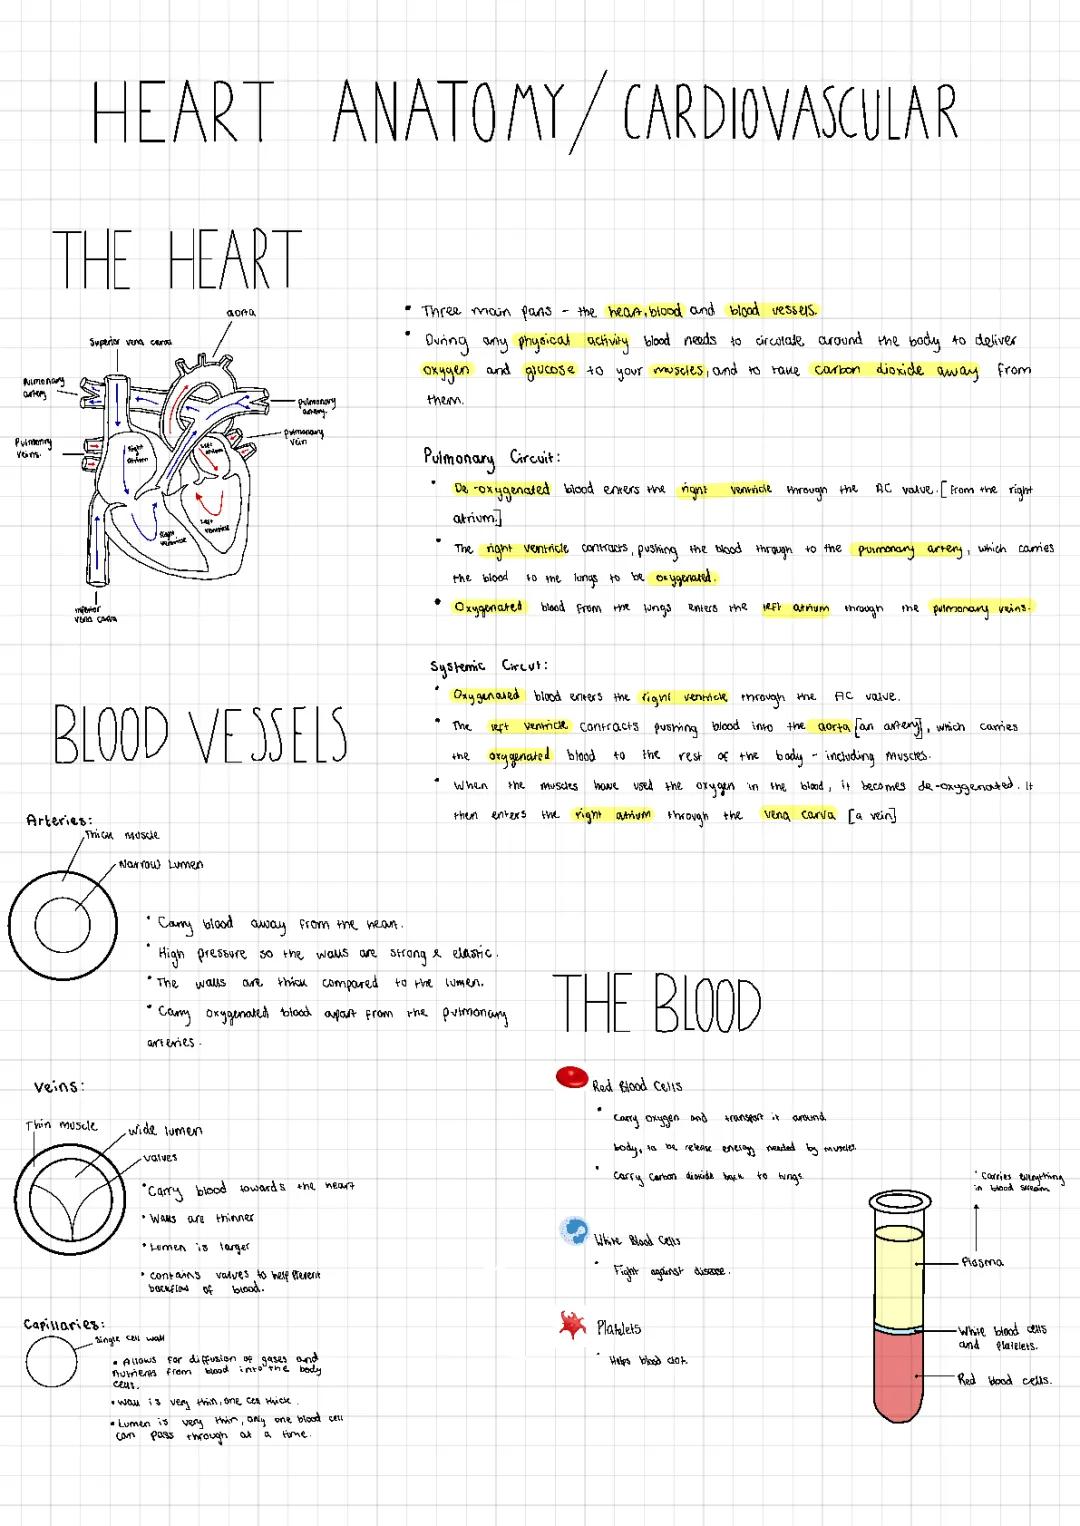 HEART ANATOMY/CARDIOVASCULAR
THE HEART
aorta
Superior vena cava
Pulmonary
artery
Pulmonary
veins.
pulmonary
artery.
pulmonary
vein
Right
atrium
Left
atrium
Left
ventricle
Right
ventricle
inferior
vena cava
• Three main parts - the heart, blood and blood vessels.
• During any physical activity blood needs to circulate around the body to deliver
oxygen and glucose to your muscles, and to take carbon dioxide away from
them.
Pulmonary Circuit:
• De-oxygenated blood enters the right ventricle through the AC value. [from the right
atrium]
• The right ventricle contracts, pushing the blood through to the pulmonary artery, which carries
the blood to the lungs to be oxygenated.
• Oxygenated blood from the lungs enters the left atrium through the pulmonary veins.
Systemic Circut:
• Oxygenated blood enters the right ventricle through the AC value.
• The left ventricle contracts pushing blood into the aorta [an artery], which carries
the oxygenated blood to the rest of the body - including muscles.
• When the muscles have used the oxygen in the blood, it becomes de-oxygenated. It
then enters the right atrium through the vena carva [a vein]
BLOOD VESSELS
Arteries:
Thick muscle
Narrow Lumen
• Carry blood away from the heart.
• High pressure so the walls are strong & elastic.
• The walls are thick compared to the lumen.
• Carry oxygenated blood apart from the pulmonary
arteries.
Veins:
Thin muscle
wide lumen
valves
• Carry blood towards the heart
• Walls are thinner
• Lumen is larger
• contains valves to help prevent
backflow of blood.
Capillaries:
Single cell wall
• Allows for diffusion of gases and
nutrients from blood into the body
cells.
• Wall is very thin, one cell thick.
• Lumen is very thin, only one blood cell
can pass through at a time.
THE BLOOD
Red Blood Cells
• Carry oxygen and transport it around
body, to be release energy needed by muscles.
• Carry Carbon dioxide back to lungs
White Blood Cells
• Fight against disease.
Platelets
• Helps blood clot.
• Carries everything
in blood stream
Plasma
White blood cells
and platelets.
Red blood cells.